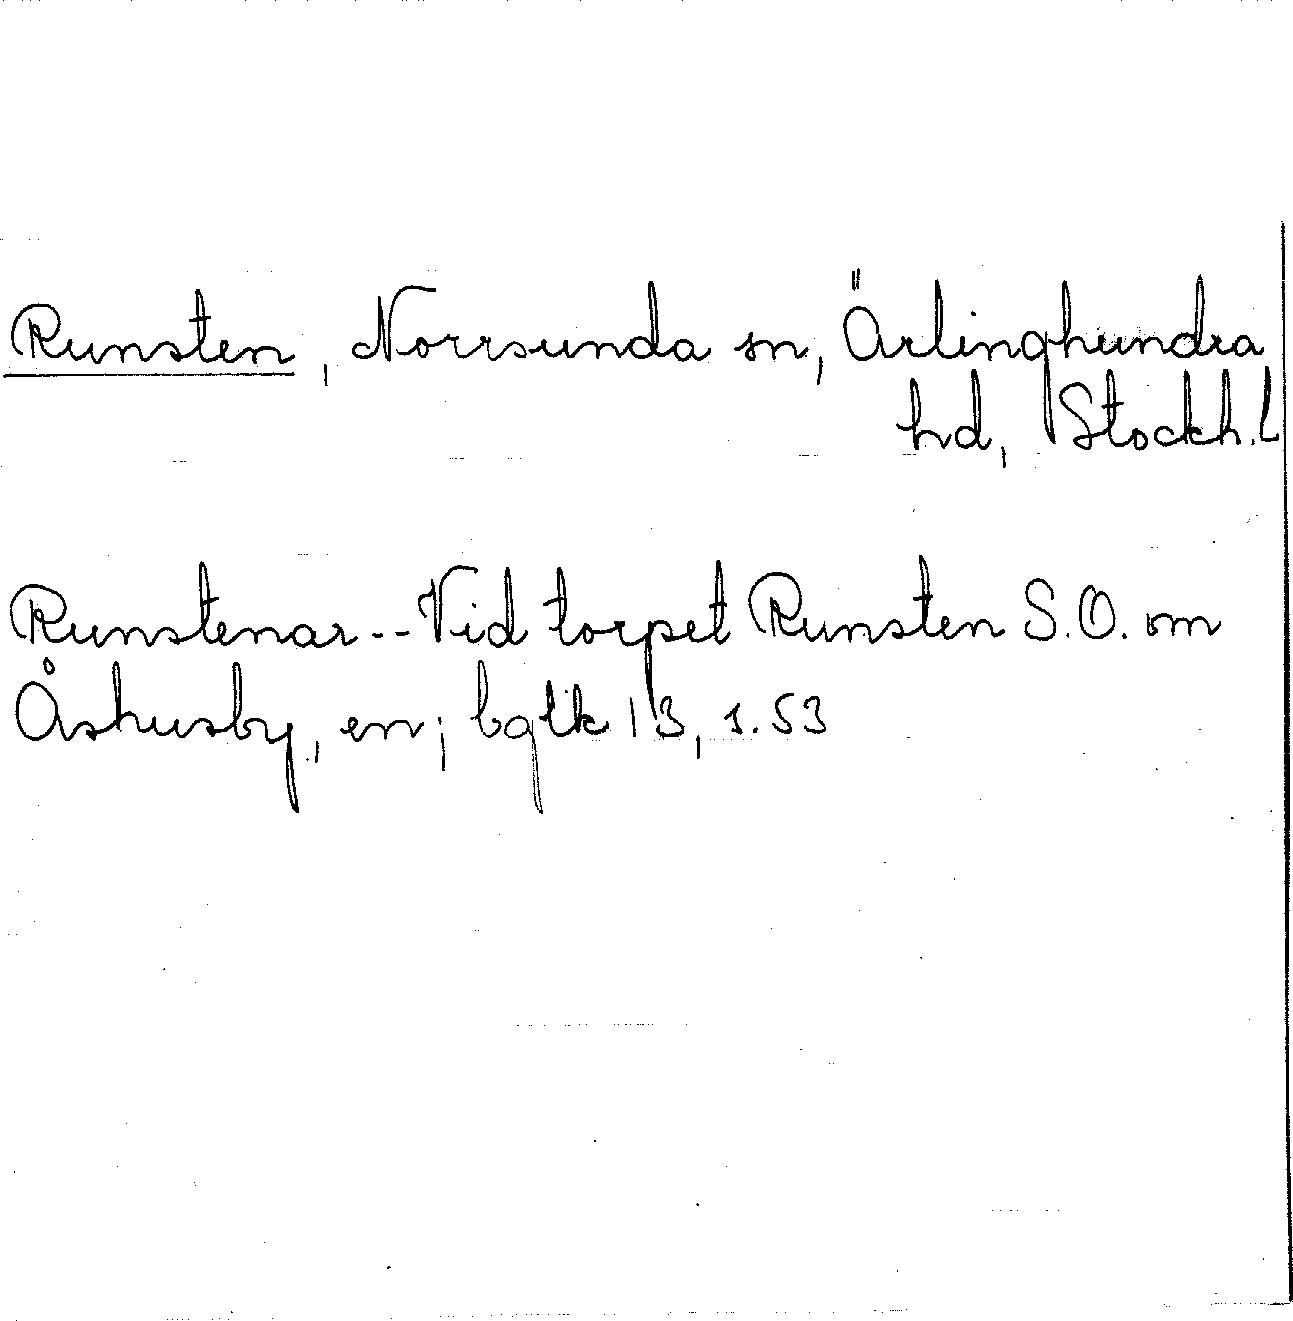 Runsten, Norrsunda sn, Ärlinghundra
hd, Stockh. L
Runstenar -- Vid torpet Runsten S.O. om
Åshusby, en; bglk 13, s. 53